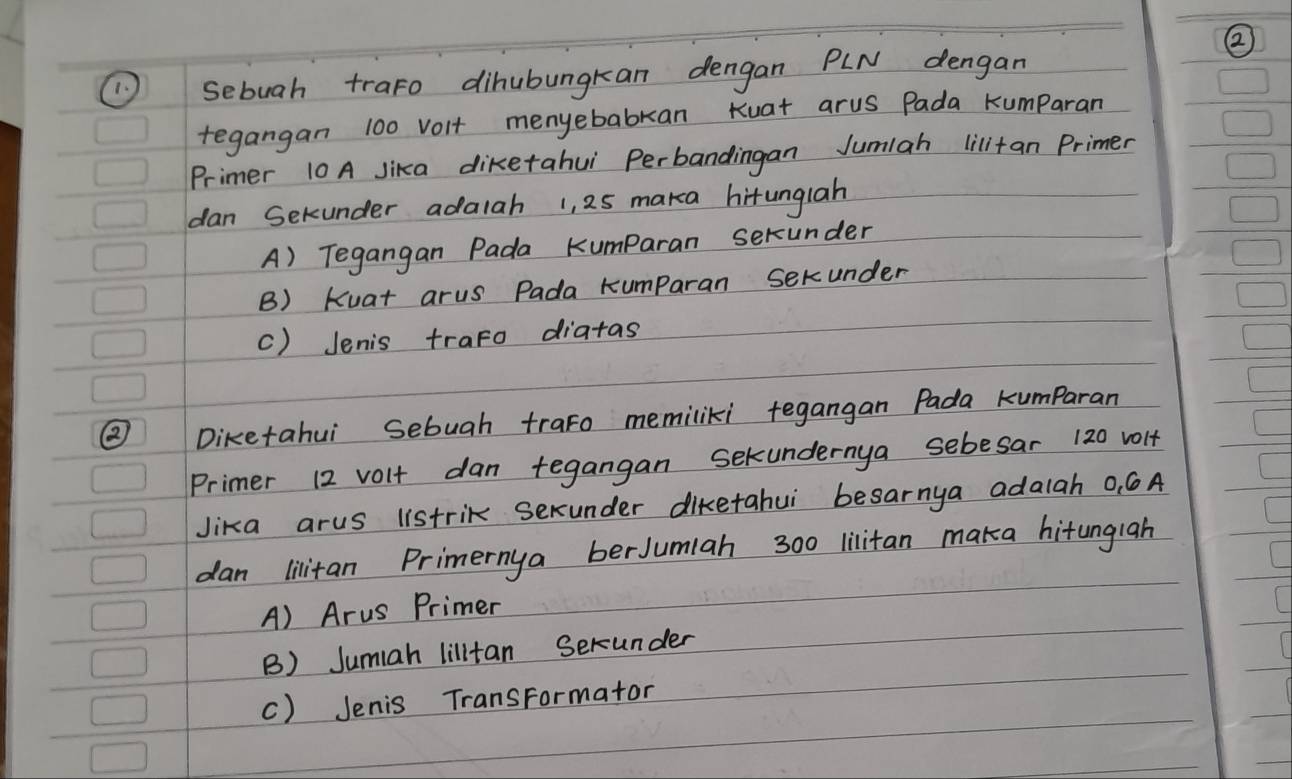 1. Sebuah trafo dihubungkan dengan PLN dengan
tegangan 100 Volt menyebabkan Kuat arus Pada kumparan
Primer 10 A Jika diketahui Perbandingan Jumlah lilitan Primer
dan Sekunder adalah 1,25 maka hitunglah
A) Tegangan Pada Kumparan sekunder
B) Kuat arus Pada kumparan sekunder
C) Jenis trafo diatas
2 Diketahui Sebuah trafo memiliki tegangan Pada kumparan
Primer 12 volt dan tegangan sekundernya sebesar 120 volt
Jika arus listrik sekunder diketahui besarnya adalah 0,6 A
dan lilitan Primernya berJumlah 300 lilitan maka hitunglah
A) Arus Primer
B) Jumlah lilitan Sekunder
C) Jenis Transformator
2